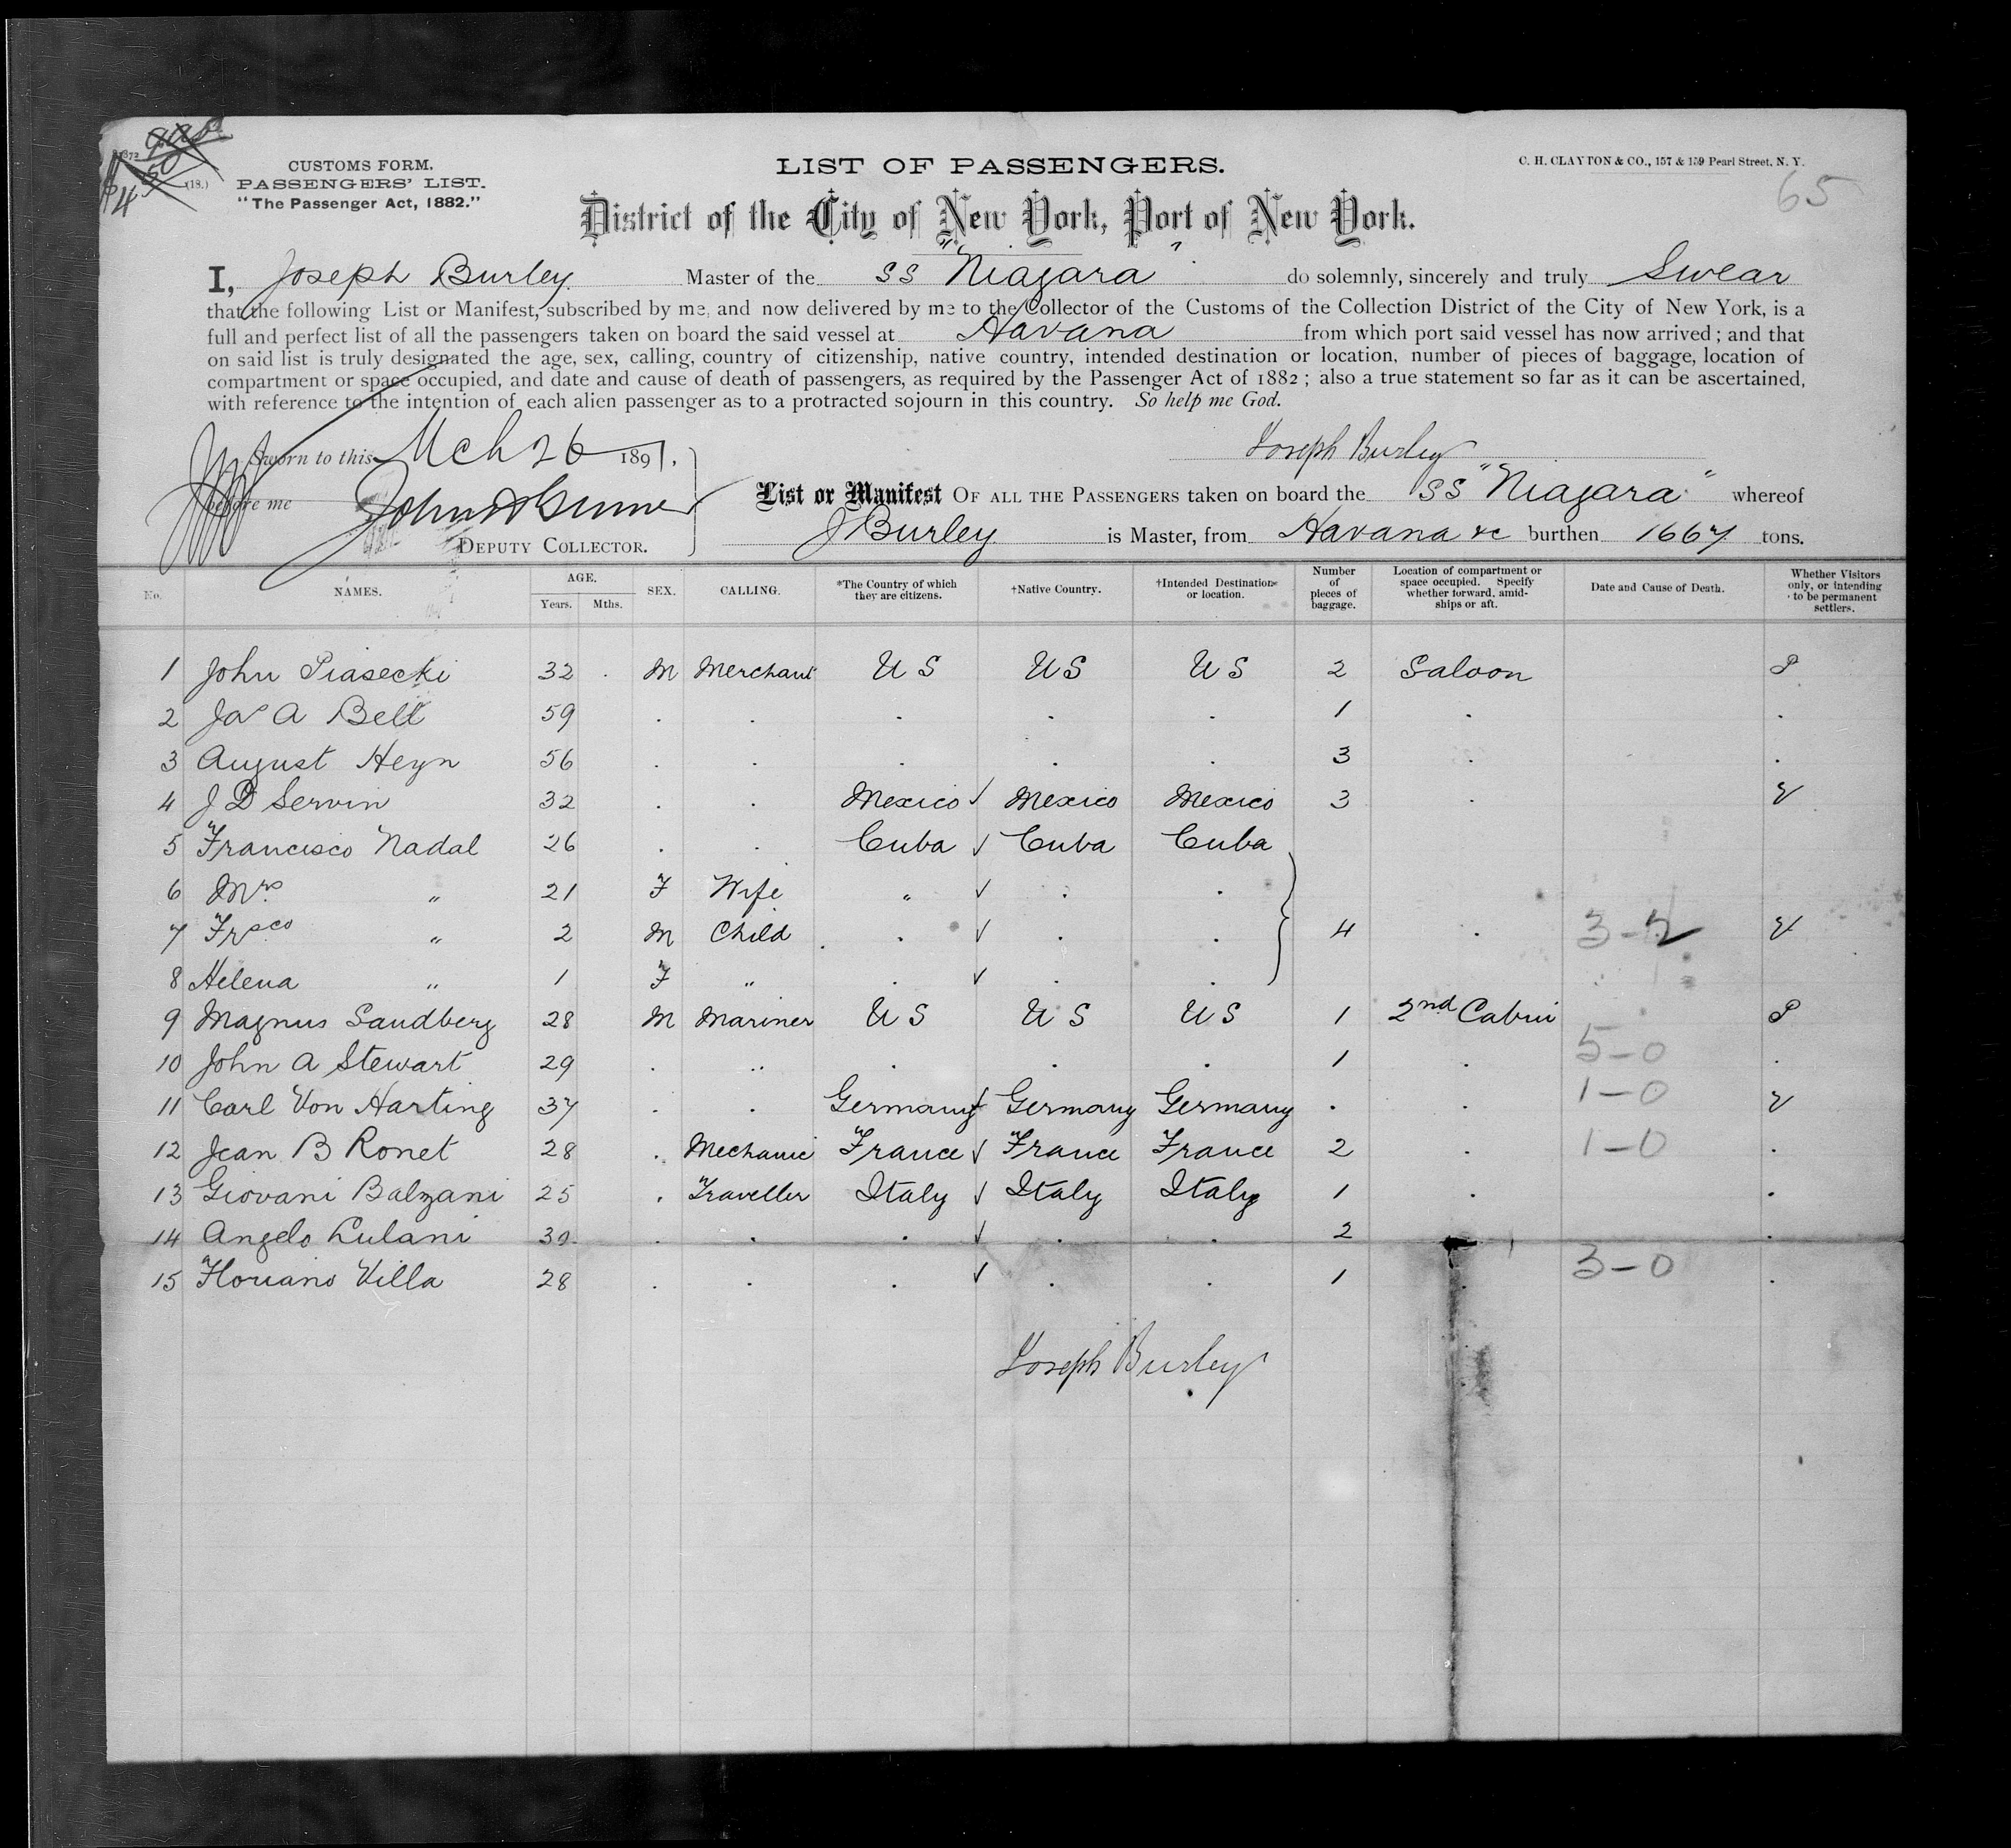 CUSTOMS FORM.
PASSENGERS' LIST.
"The Passenger Act, 1882."
(18.)
LIST OF PASSENGERS.
C. H. CLAYTON & CO., 157 & 159 Pearl Street, N. Y.
65
District of the City of New York, Port of New York.
I, Joseph Burley Master of the SS "Niagara" do solemnly, sincerely and truly Swear
that the following List or Manifest, subscribed by me, and now delivered by me to the Collector of the Customs of the Collection District of the City of New York, is a
full and perfect list of all the passengers taken on board the said vessel at Havana from which port said vessel has now arrived; and that
on said list is truly designated the age, sex, calling, country of citizenship, native country, intended destination or location, number of pieces of baggage, location of
compartment or space occupied, and date and cause of death of passengers, as required by the Passenger Act of 1882; also a true statement so far as it can be ascertained,
with reference to the intention of each alien passenger as to a protracted sojourn in this country. So help me God.
Sworn to this Mch 26 1891.
Joseph Burley
before me
DEPUTY COLLECTOR.
List or Manifest OF ALL THE PASSENGERS taken on board the SS "Niagara" whereof
J Burley is Master, from Havana &c burthen 1667 tons.
No. NAMES. AGE. Years. Mths. SEX. CALLING. *The Country of which they are citizens. †Native Country. †Intended Destination or location. Number of pieces of baggage. Location of compartment or space occupied. Specify whether forward, amidships or aft. Date and Cause of Death. Whether Visitors only, or intending to be permanent settlers.
1 John Piasecki 32 . M Merchant US US US 2 Saloon P
2 Jas A Bell 59 . . . . . 1 . .
3 August Heyn 56 . . . . . 3 . .
4 J D Servin 32 . . Mexico ✓ Mexico Mexico 3 . V
5 Francisco Nadal 26 . . Cuba ✓ Cuba Cuba
6 Mrs " 21 F Wife " ✓ . .
7 Frsco " 2 M Child . ✓ . . 4 . 3-2 V
8 Helena " 1 F " . ✓ . .
9 Magnus Sandberg 28 M Mariner US US US 1 2nd Cabin P
10 John A Stewart 29 . " . . . 1 . 5-0 .
11 Carl Von Harting 37 . . Germany ✓ Germany Germany . . 1-0 V
12 Jean B Ronet 28 . Mechanic France ✓ France France 2 . 1-0 .
13 Giovani Balzani 25 . Traveller Italy ✓ Italy Italy 1 . .
14 Angelo Lulani 30 . . . ✓ . . 2 .
15 Floriano Villa 28 . . . ✓ . . 1 . 3-0 .
Joseph Burley